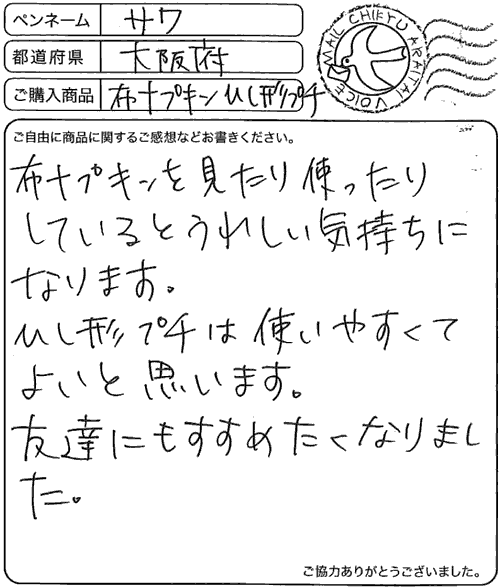 ペンネーム サワ
MAIL CHIEKYU ARAITAI VOICE
都道府県 大阪府
ご購入商品 布ナプキンひし形プチ
ご自由に商品に関するご感想などお書きください。
布ナプキンを見たり使ったり
しているとうれしい気持ちに
なります。
ひし形プチは使いやすくて
よいと思います。
友達にもすすめたくなりまし
た。
ご協力ありがとうございました。